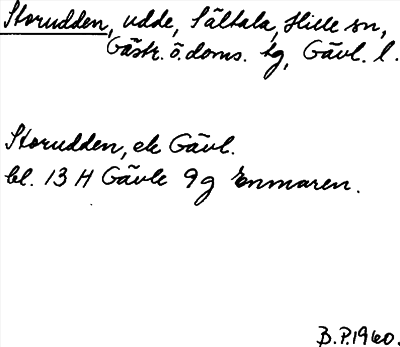 Storudden, udde, Sältala, Hille sn,
Gästr. ö. doms. tg, Gävl. l.
Storudden, ek Gävl.
bl. 13 H Gävle 9g Enmaren.
B.P. 1960.